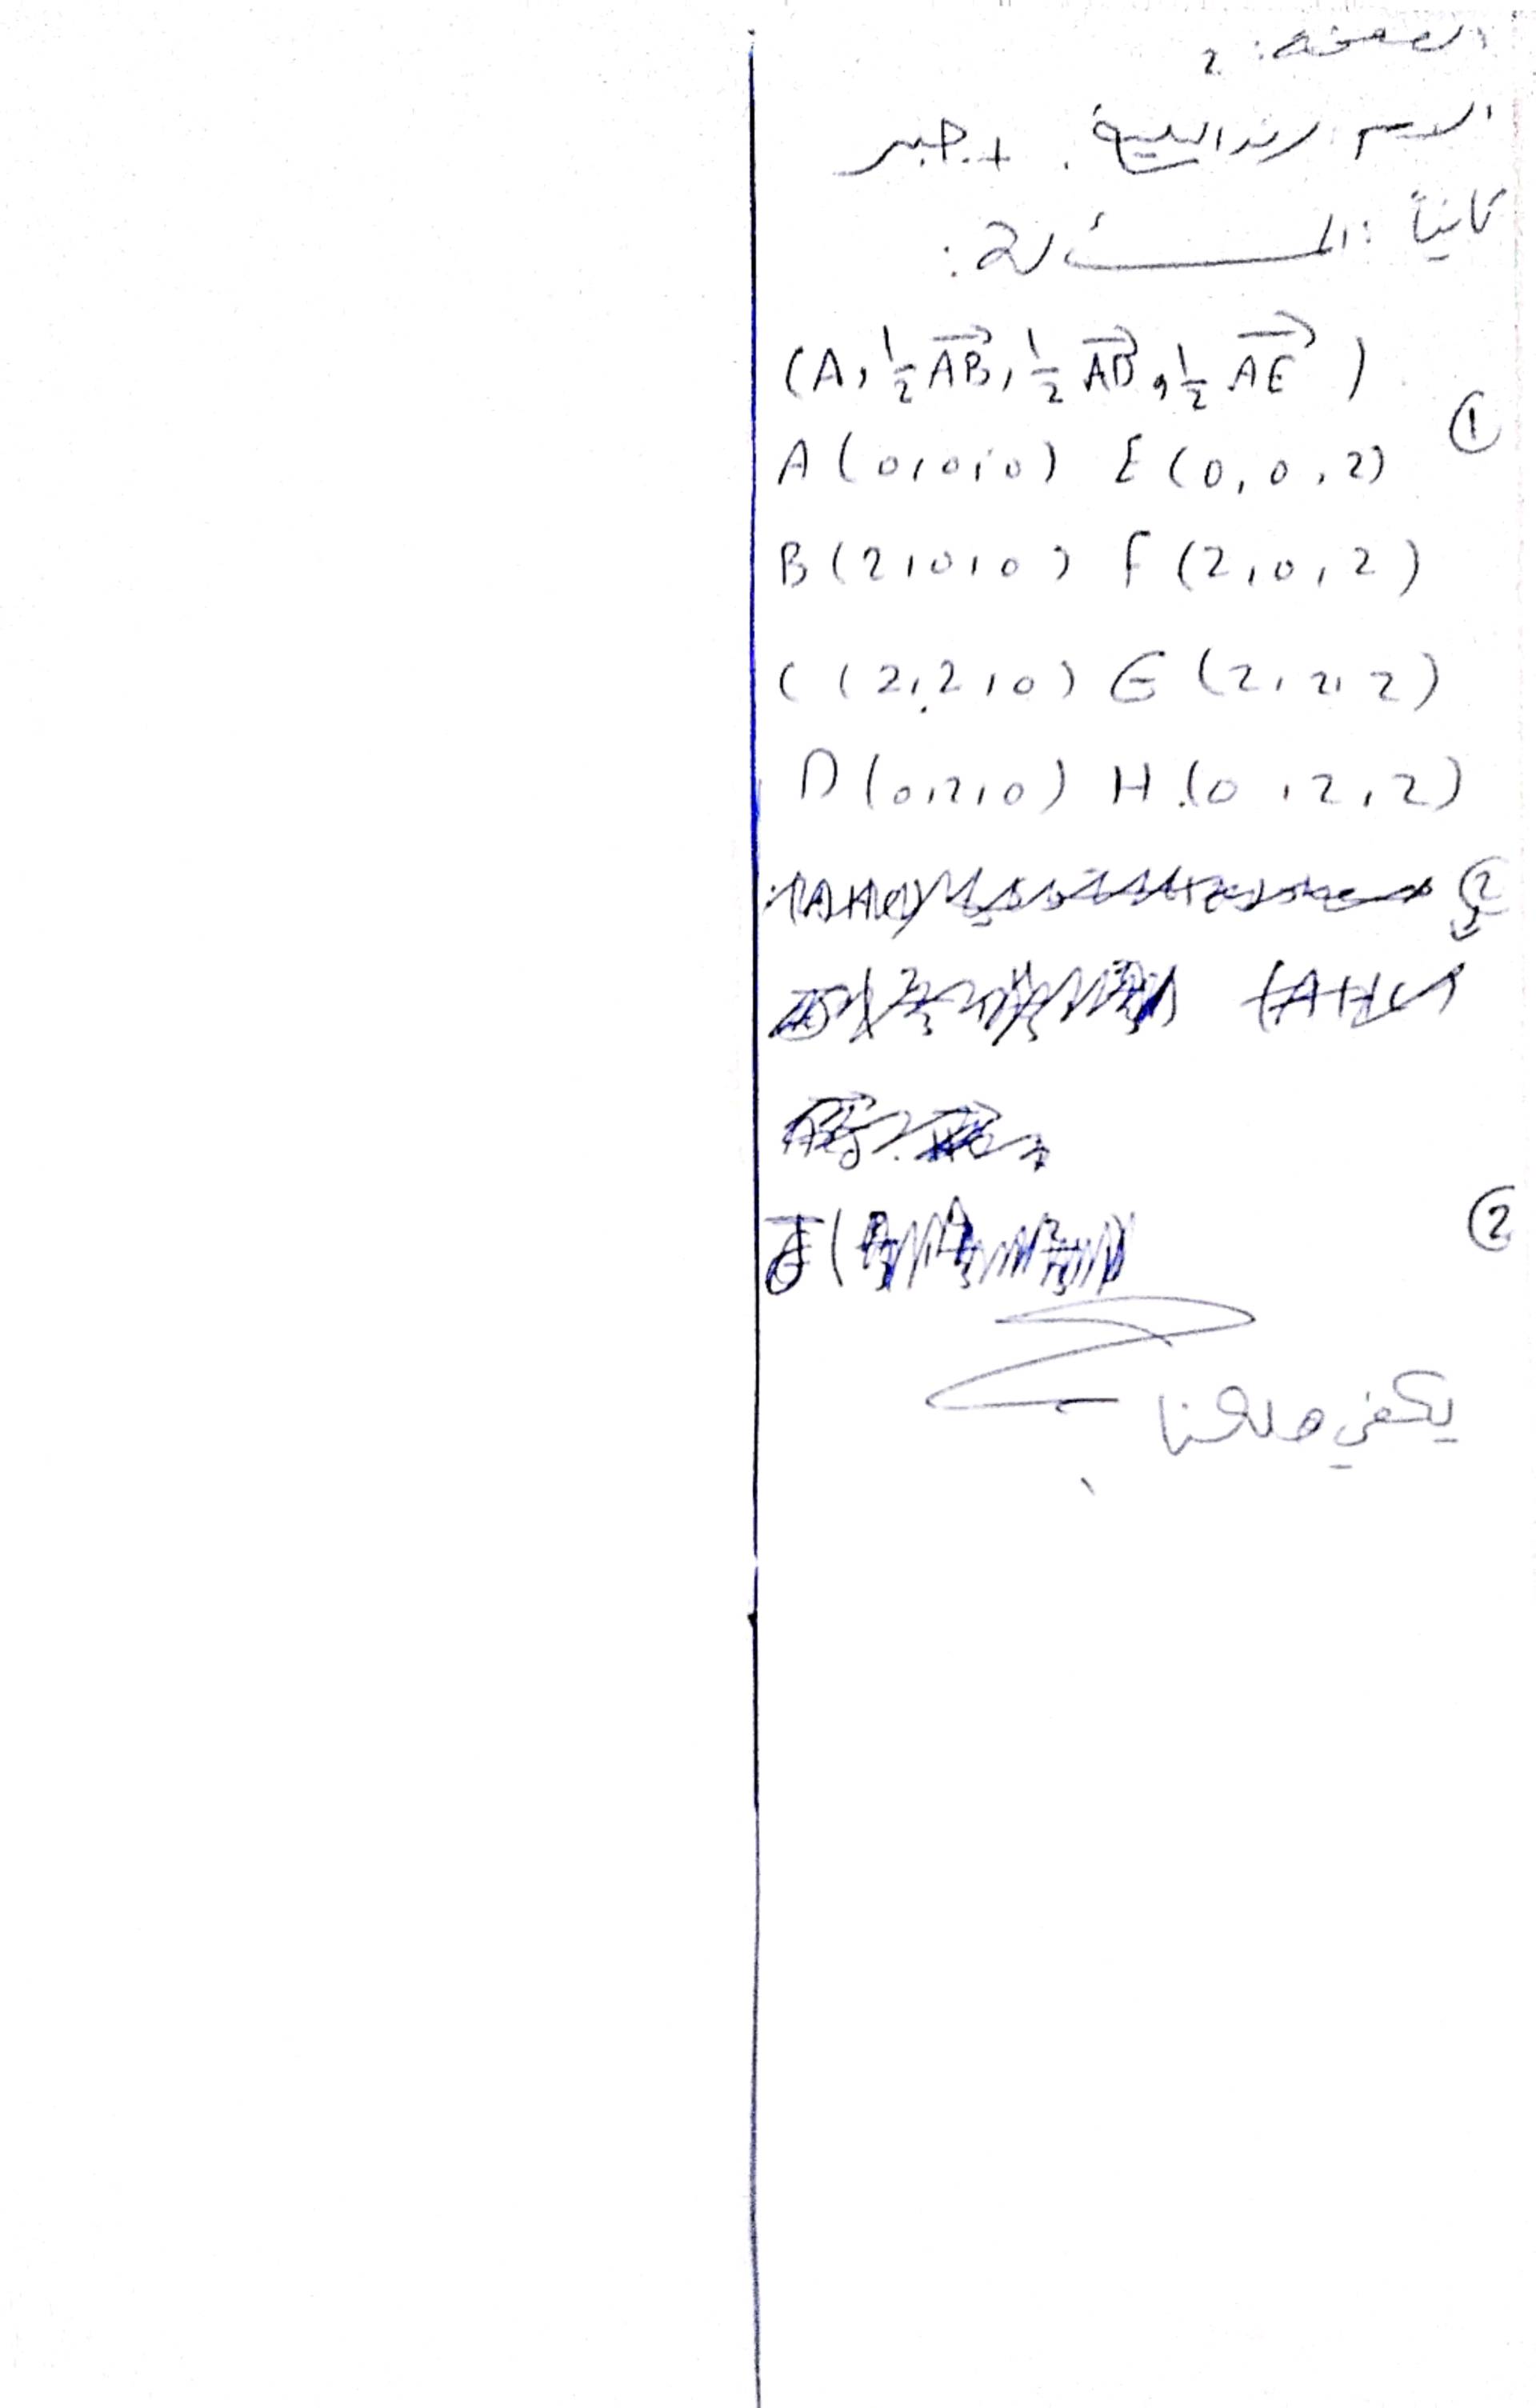 الصفحة: 2
الاسم: . + جبر
ثانياً: المسألة:
(A, ½ AB, ½ AD, ½ AE)
①
A(0,0,0) E(0,0,2)
B(2,0,0) F(2,0,2)
C(2,2,0) G(2,2,2)
D(0,2,0) H(0,2,2)
②
(AHC)
②
يكفي لهنا